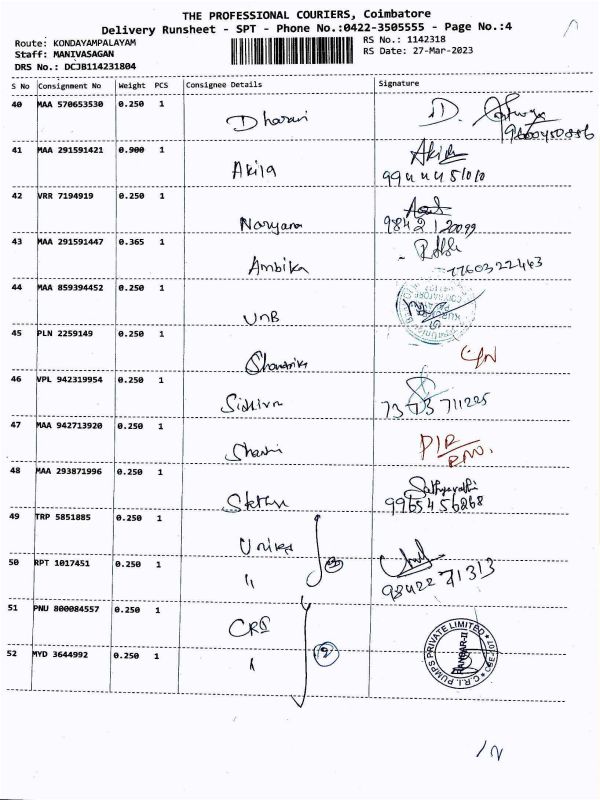 THE PROFESSIONAL COURIERS, Coimbatore
Delivery Runsheet - SPT - Phone No.:0422-3505555 - Page No.:4
Route: KONDAYAMPALAYAM
Staff: MANIVASAGAN
DRS No.: DCJB114231804
RS No.: 1142318
RS Date: 27-Mar-2023
S No Consignment No Weight PCS Consignee Details Signature
40 MAA 570653530 0.250 1
Dharani
41 MAA 291591421 0.900 1
Akila Akila
9944451010
42 VRR 7194919 0.250 1
Naryana
9842120099
43 MAA 291591447 0.365 1
Ambika
7760322463
44 MAA 859394452 0.250 1
UnB
45 PLN 2259149 0.250 1
46 VPL 942319954 0.250 1
7373711225
47 MAA 942713920 0.250 1
48 MAA 293871996 0.250 1
9965456868
49 TRP 5851885 0.250 1
50 RPT 1017451 0.250 1
"
9842271313
51 PNU 800084557 0.250 1
CRI
52 MYD 3644992 0.250 1
"
2
C.R.I. PUMPS PRIVATE LIMITED